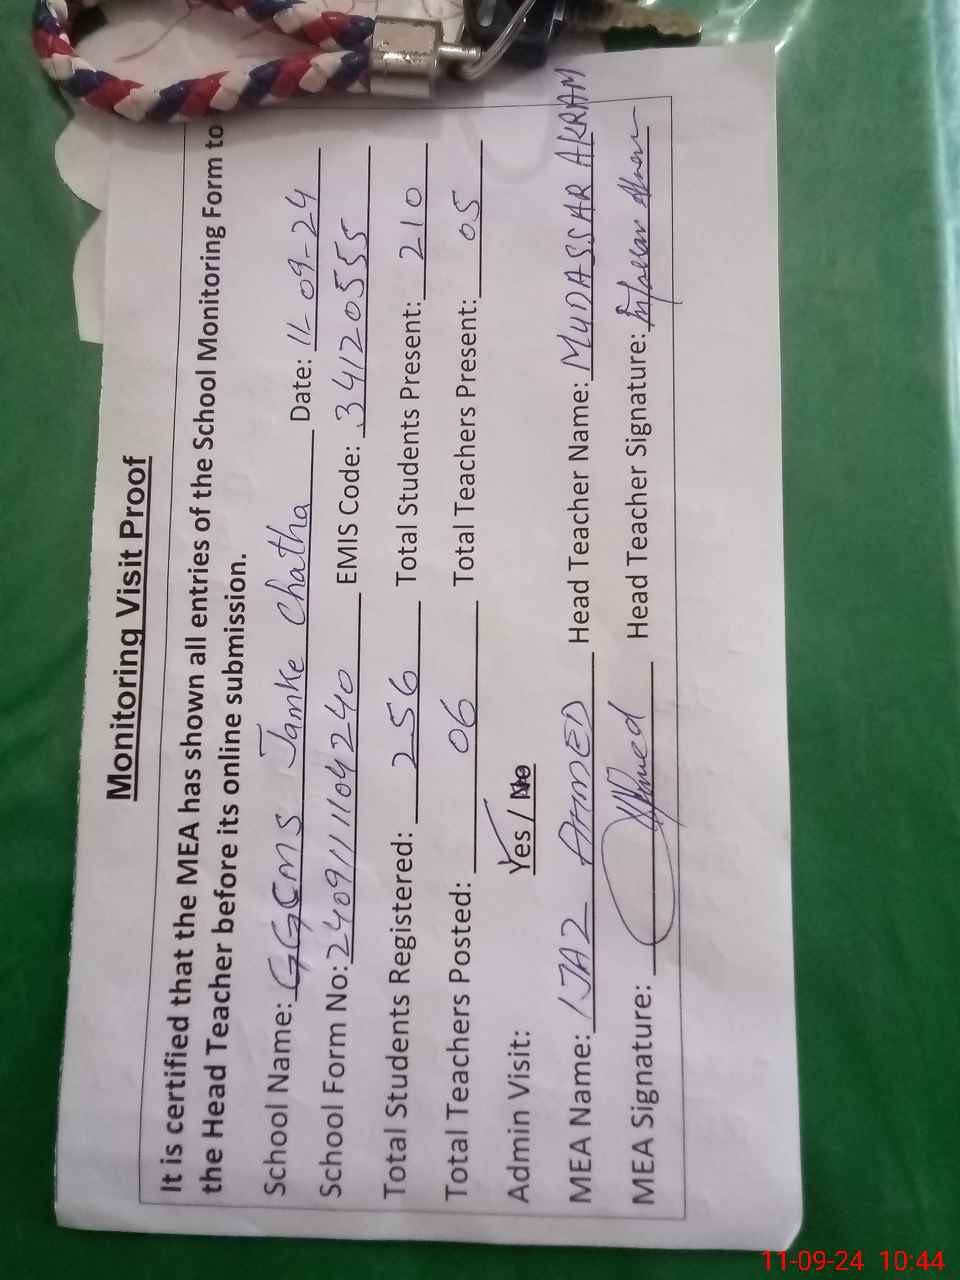 Monitoring Visit Proof
It is certified that the MEA has shown all entries of the School Monitoring Form to
the Head Teacher before its online submission.
School Name: GGCMS Jamke Chatha Date: 11-09-24
School Form No: 240911110424 0 EMIS Code: 34120555
Total Students Registered: 256 Total Students Present: 210
Total Teachers Posted: 06 Total Teachers Present: 05
Admin Visit: Yes / No
MEA Name: IJAZ AHMED Head Teacher Name: MUDASSAR AKRAM
MEA Signature: Ahmed Head Teacher Signature:
11-09-24 10:44